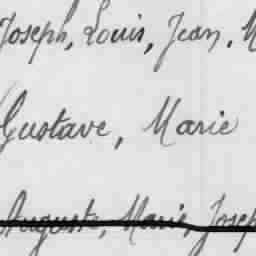 Joseph, Louis, Jean, M
Gustave, Marie
Auguste, Marie, Josep